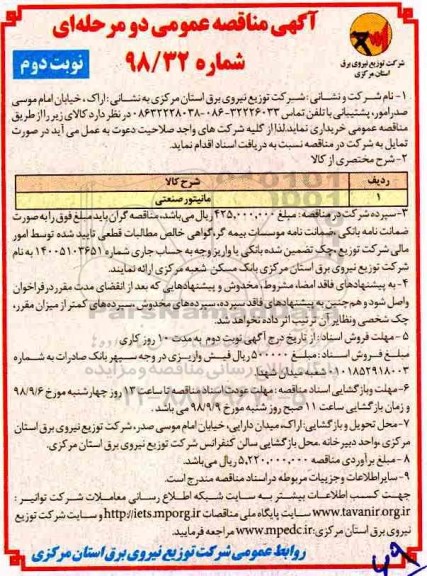 آگهی مناقصه عمومی دو مرحله‌ای
شماره ۹۸/۳۲
نوبت دوم
شرکت توزیع نیروی برق
استان مرکزی
۱- نام شرکت و نشانی: شرکت توزیع نیروی برق استان مرکزی به نشانی: اراک، خیابان امام موسی
صدر امور، پشتیبانی با تلفن تماس ۳۳-۳۲۲۲۶۰-۰۸۶ -۰۸۶۳۲۲۲۸۰۳۸ در نظر دارد کالای زیر را از طریق
مناقصه عمومی خریداری نماید لذا از کلیه شرکت های واجد صلاحیت دعوت به عمل می آید در صورت
تمایل به شرکت در مناقصه نسبت به دریافت اسناد اقدام نماید.
۲- شرح مختصری از کالا
ردیف شرح کالا
۱ مانیتور صنعتی
۳- سپرده شرکت در مناقصه: مبلغ ۴۲۵,۰۰۰,۰۰۰ ریال می‌باشد، مناقصه گران باید مبلغ فوق را به صورت
ضمانت نامه بانکی، ضمانت نامه موسسات بیمه گر، گواهی خالص مطالبات قطعی تایید شده توسط امور
مالی شرکت توزیع، چک تضمین شده بانکی یا واریز وجه به حساب جاری شماره ۱۴۰۰۵۱۰۳۶۵۱ به نام
شرکت توزیع نیروی برق استان مرکزی بانک مسکن شعبه مرکزی ارائه نمایند.
۴- به پیشنهادهای فاقد امضا، مشروط، مخدوش و پیشنهادهایی که بعد از انقضای مدت مقرر در فراخوان
واصل شود و هم‌چنین به پیشنهادهای فاقد سپرده، سپرده‌های مخدوش، سپرده‌های کمتر از میزان مقرر،
چک شخصی و نظایر آن ترتیب اثر داده نخواهد شد.
۵- مهلت فروش اسناد: از تاریخ درج آگهی نوبت دوم به مدت ۱۰ روز کاری
مبلغ فروش اسناد: مبلغ ۵۰۰۰۰۰ ریال فیش واریزی در وجه سپهر بانک صادرات به شماره
۰۱۰۱۸۵۲۹۱۸۰۰۳ شعبه میدان شهدا
۶- مهلت و بازگشایی اسناد مناقصه: مهلت عودت اسناد مناقصه تا ساعت ۱۳ روز چهارشنبه مورخ ۹۸/۹/۶
و زمان بازگشایی ساعت ۱۱ صبح روز شنبه مورخ ۹۸/۹/۹ می باشد.
۷- محل تحویل و بازگشایی: اراک، میدان دارایی، خیابان امام موسی صدر، شرکت توزیع نیروی برق استان
مرکزی، واحد دبیرخانه. محل بازگشایی سالن کنفرانس شرکت توزیع نیروی برق استان مرکزی.
۸- مبلغ برآوردی مناقصه ۵,۲۲۰,۰۰۰,۰۰۰ ریال می‌باشد.
۹- سایر اطلاعات و جزییات مربوطه در اسناد مناقصه مندرج است.
جهت کسب اطلاعات بیشتر به سایت شبکه اطلاع رسانی معاملات شرکت توانیر:
www.tavanir.org.ir سایت پایگاه ملی مناقصات http://iets.mporg.ir و سایت شرکت توزیع
نیروی برق استان مرکزی: www.mpedc.ir مراجعه فرمایید.
روابط عمومی شرکت توزیع نیروی برق استان مرکزی